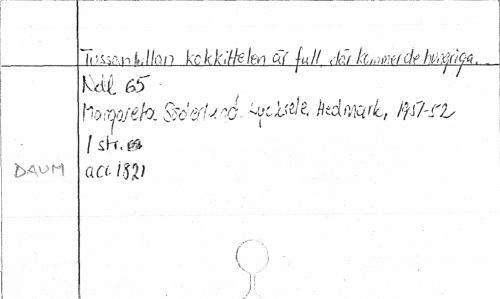 Tussantullan kokkittelen är full, där kommer de hungriga.
Ndl 65
Margareta Söderlund. Lycksele. Hedmark, 1951-52
1 str.
DAUM acc 1821